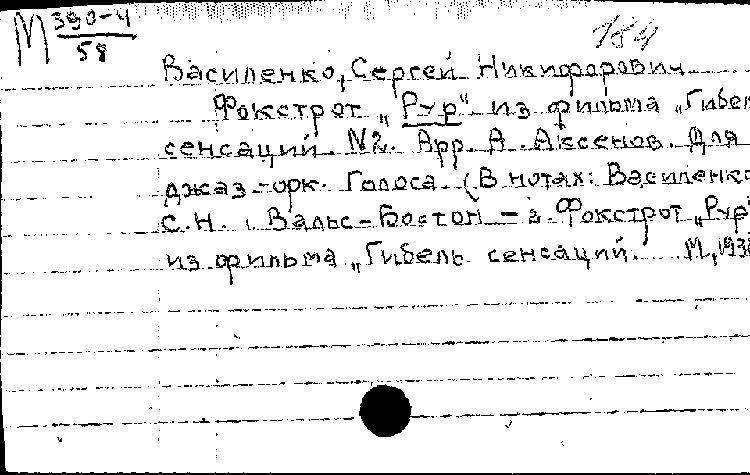 М 390-4
58
184
Василенко, Сергей Никифорович
Фокстрот „Рур" из фильма „Гибел
сенсаций. №2. Арр. А. Аксенов. Для
джаз-орк. Голоса. (В нотах: Василенко
С.Н. Вальс-Бостон – 2. Фокстрот „Рур"
из фильма „Гибель сенсаций. М., 193